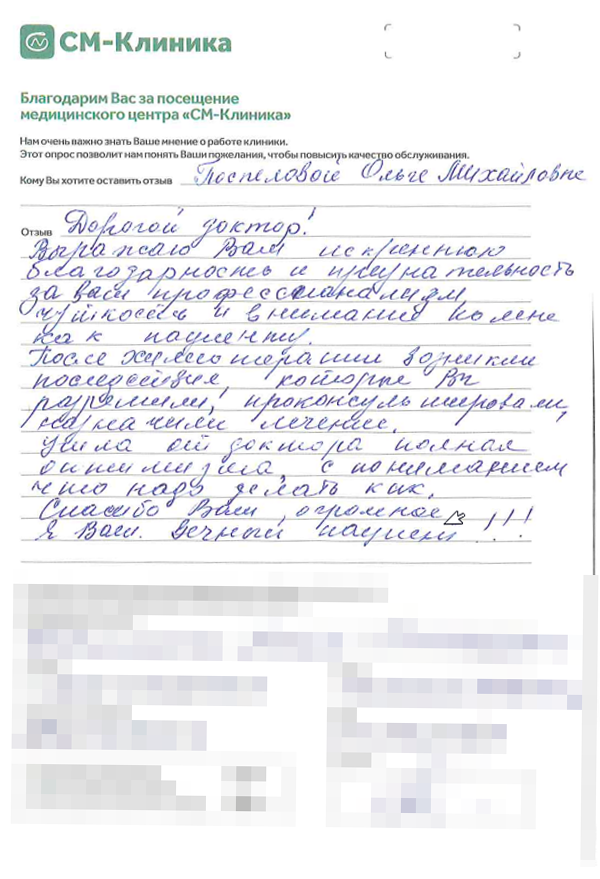 СМ-Клиника
Благодарим Вас за посещение
медицинского центра «СМ-Клиника»
Нам очень важно знать Ваше мнение о работе клиники.
Этот опрос позволит нам понять Ваши пожелания, чтобы повысить качество обслуживания.
Кому Вы хотите оставить отзыв Поспеловой Ольге Михайловне
Отзыв Дорогой доктор!
Выражаю Вам искреннюю
благодарность и признательность
за ваш профессионализм,
чуткость и внимание ко мне
как к пациенту.
После химиотерапии возникли
последствия, которые Вы
разрешили, проконсультировали,
назначили лечение.
Ушла от доктора полная
оптимизма, с пониманием
что надо делать как.
Спасибо Вам огромное !!!
Я Ваш вечный пациент